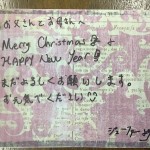 お父さんとお母さんへ
Merry Christmas &
HAPPY New Year
まだよろしくお願いします。
お元気でください